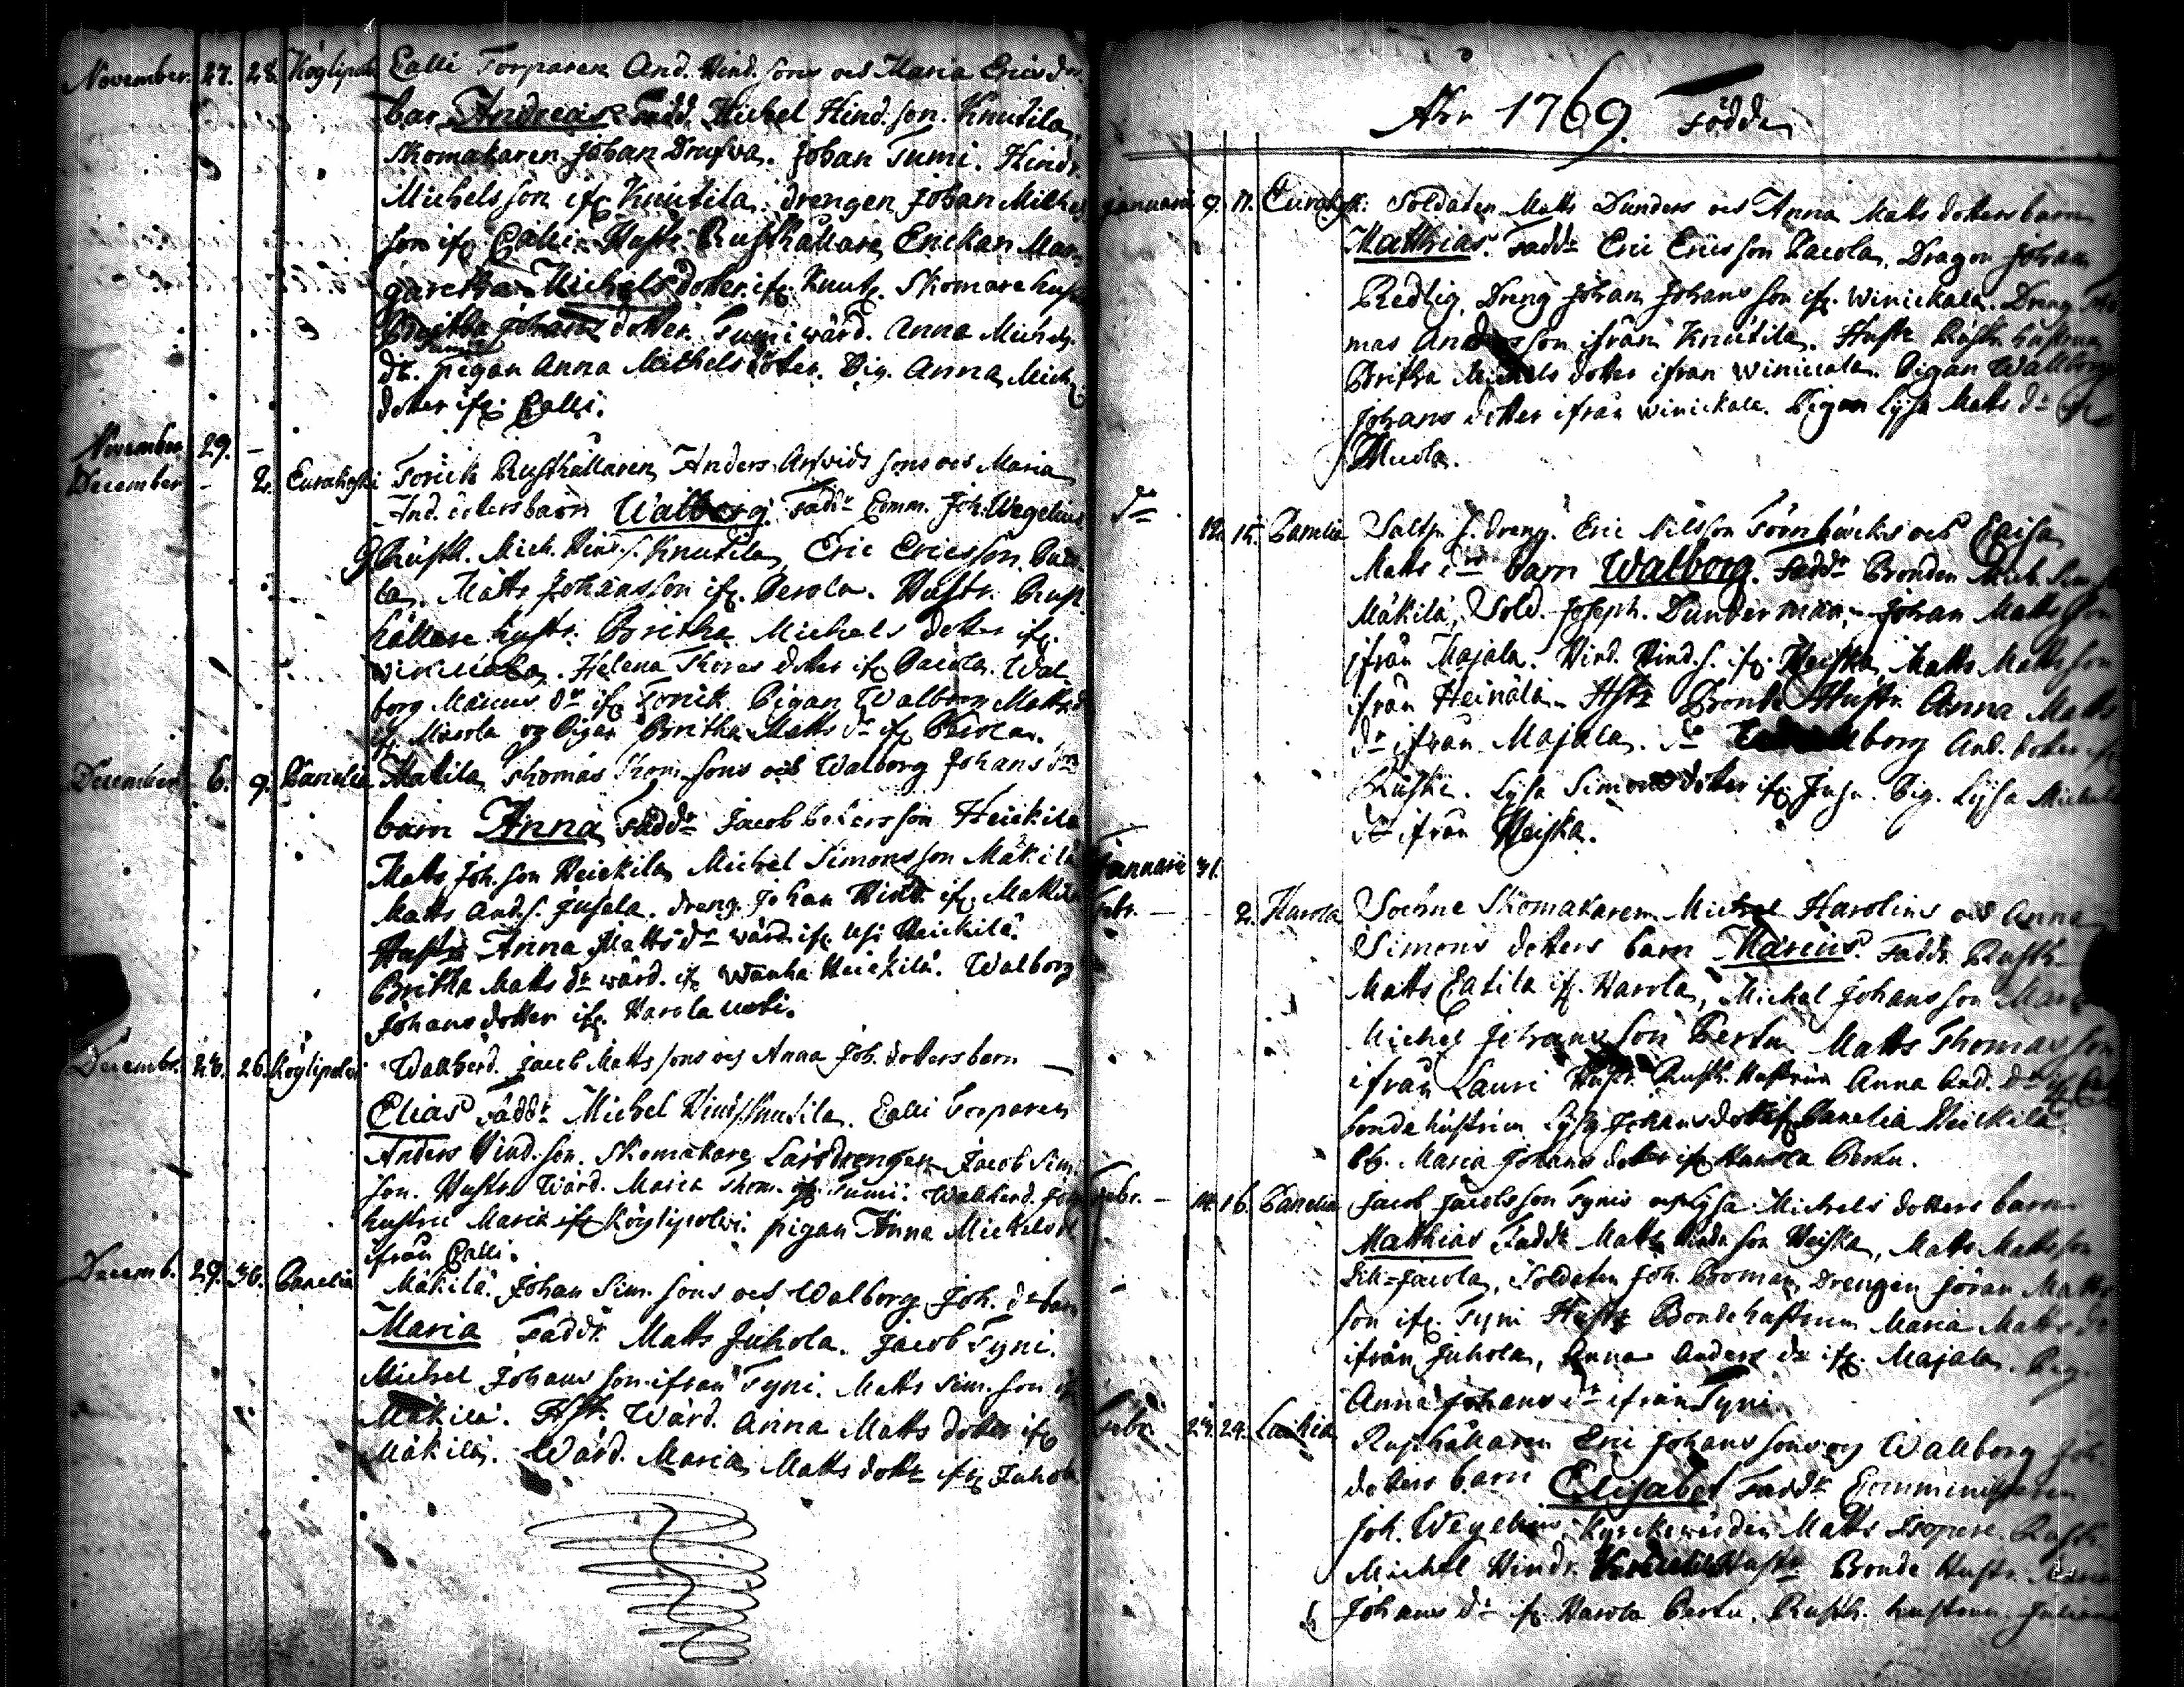 November. 27. 28. Köylipolv. Calli Torparen And. Hind. sons och Maria Ericsdrs
bar Andreas Fadd. Michel Hind. son. Knutila,
Skomakaren Johan Drufva. Johan Tumi. Hindr.
Michels son ifr. Knutila. drengen Johan Mich
son ifr. Calli. Hustr. Rusthållare Enckan Mar-
garetha Michels dotter ifr. Knut. Skomare hust
Britha Johans dotter. Tumi wärd. Anna Michels
dr. pigan Anna Michels doter. Pig. Anna Mich
dotter ifr. Calli.
November 29. -
December - 2. Eurakoski Torick Rusthållaren Anders Arfvids sons och Maria
And. doters barn Walborg. Faddr Comm. Joh. Wegelius
Rusth. Mich. Hind. s. Knutila, Eric Ericsson Pau
la. Matts Johansson ifr. Perola. Hustr. Rust
hållare hustr. Britha Michels dotter ifr.
Winickala. Helena Thomas doter ifr. Paulola. Wal-
borg Månns dr ifr Torick. Pigan Walborg Matts d
ifr. Micola og Pigan Britha Matts dr ifr. Paulola.
December 6. 9. Panelia Matila Thomas Thom. sons och Walborg Johans drs
barn Anna Faddr Jacob Pehrsson Heickila
Matts Joh. son Heickila Michel Simonsson Mäkila
Matts And. s. Jusela. dreng. Johan Hind. ifr. Mattila
Hustr Anna Matts dr wärd. ifr. Usi Heickilä.
Britha Matts dr wärd. ifr Wanha Heickilä. Walborg
Johans dotter ifr. Harola
Decembr. 23. 26. Köylipolvi Wallberd. Jacob Matts sons och Anna Joh. dotters barn
Elias Faddr Michel Hinds Knutila. Calli Torparen
Anders Hind. son. Skomakare Lärodrengen Jacob Sim.
son. Hustr. Wärd. Maria Thom. ifr. Tumi. Wallberd.
hustru Maria ifr Köylipolwi. pigan Anna Michels d
ifrån Calli.
Decemb. 29. 30. Panelia Mäkilä. Johan Sim. sons och Walborg Joh. dr barn
Maria Faddr. Matts Juhola. Jacob Tyni.
Michel Johans son ifrån Tyni. Matts Sim. son if
Mäkilä. Hustr. Wärd. Anna Matts dotter ifr
Mäkilä. Wärd. Maria Matts dottr ifr Juhola
Åhr 1769. Födde
Januarii 9. 11. Eurakosk. Soldaten Matts Dunders och Anna Matts dotters barn
Matthias. Faddr Eric Ericsson Paulola, Dragon Johan
Redlig, Dreng Johan Johans son ifr. Winickala. Dreng Tho
mas Andersson ifrån Knutila. Hustr Rusth. hustrun
Britha Michels dotter ifrån Winickala. Pigan Walborg
Johans dotter ifrån Winickala. Pigan Lysa Matts dr
Micola.
dr 12. 15. Panelia Saltp. s. dreng. Eric Nilsson Törnbäcks och Caisa
Matts drs barn Walborg. Faddr Bonden Mich. Sim. son
Mäkilä, Sold. Joseph. Dunderman, Johan Matts son
ifrån Majala. Hind. Hind. s. ifr. Heiska, Matts Mattsson
ifrån Heinälä. Hustr Bonde Hustr Anna Matts
dr ifrån Majala. dr borg And. doter ifr
Lysa Simons doter ifr. Pig. Lysa Michels
dr ifrån Heiska.
Januarii 31.
Febr. - - 2. Harola Sockne Skomakaren Michel Harolins och Anna
Simons dotters barn Marcus. Faddr. Rusth.
Matts Eatila ifr. Harola, Michel Johansson
Michel Johansson Pertu Matts Thomas son
ifrån Lauri Hustr. Rusth. Hustrun Anna And. dr ifr
bonde hustrun Lysa Johans dottr ifr Panelia Heickilä.
Maria Johans doter ifr Harola Pertu.
Febr. - 14. 16. Panelia Jacob Jacobsson Tynis och Lysa Michels dotters barn
Matthias Faddr Matts Hindr son Heiska, Matts Mattsson
Soldaten Joh. Boman, Drengen Jöran Matts
son ifr. Tyni Hustr Bonde hustrun Maria Matts dr
ifrån Juhola, Anna Anders dr ifr. Majala. Pig.
Anna Johans dr ifrån Tyni.
Febr. 23. 24. Laihia Rusthållaren Eric Johans sons og Wallborg Joh.
dotters barn Elisabet Faddr Comministeren
Joh. Wegelius, Kyrckowärden Matts Isopere. Rusth.
Michel Hindr. Knutila Hustr Bonde Hustr. Maria
Johans dr ifr. Harola Pertu. Rusth. hustrun Juliana